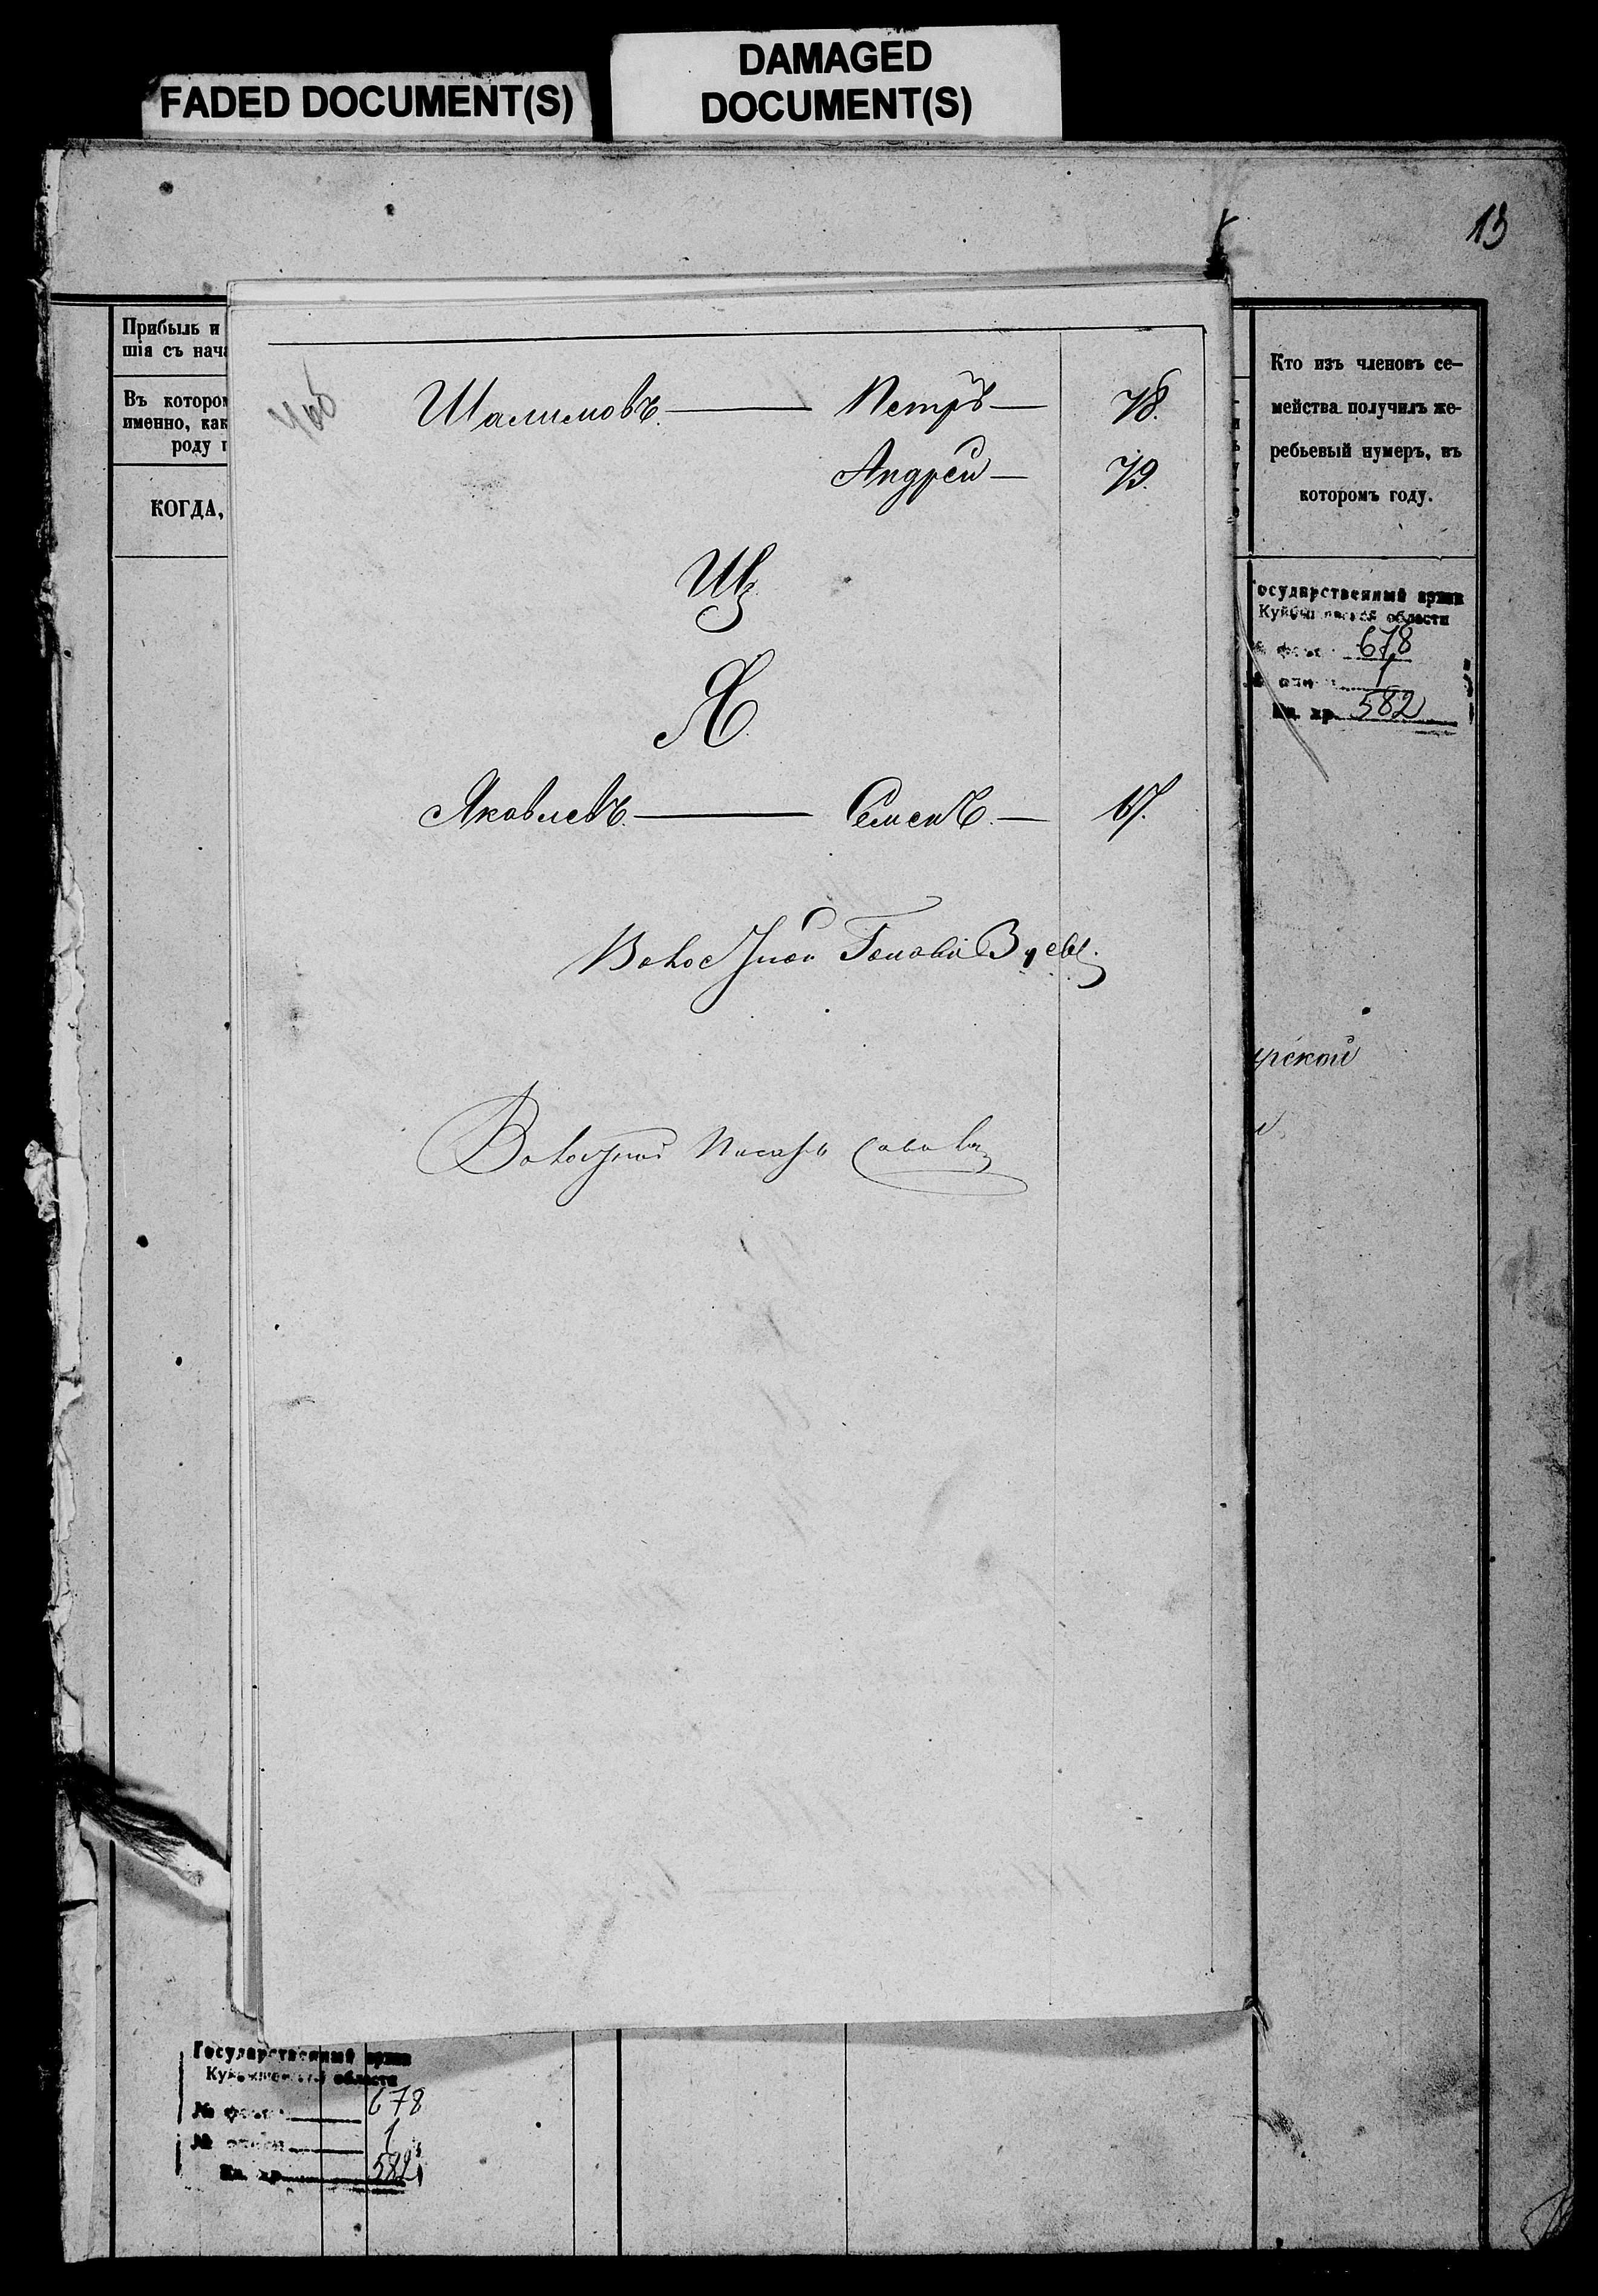 FADED DOCUMENT(S)
DAMAGED
DOCUMENT(S)
13
Прибыль и
шія съ нача
Въ которо
именно, как
роду
КОГДА,
Шалимовъ. — Петръ — 78.
Андрей — 79.
Щ
Я
Яковлевъ. — Семенъ. — 67.
Волостной Голова
Волостной Писарь
Кто изъ членовъ се-
мейства получилъ же-
ребьевый нумеръ, въ
которомъ году.
Государственный архив
Куйбышевской области
№ фонда 678
№ описи 1
Ед. хр. 582
рской
Государственный архив
Куйбышевской области
№ фонда 678
№ описи 1
Ед. хр. 582